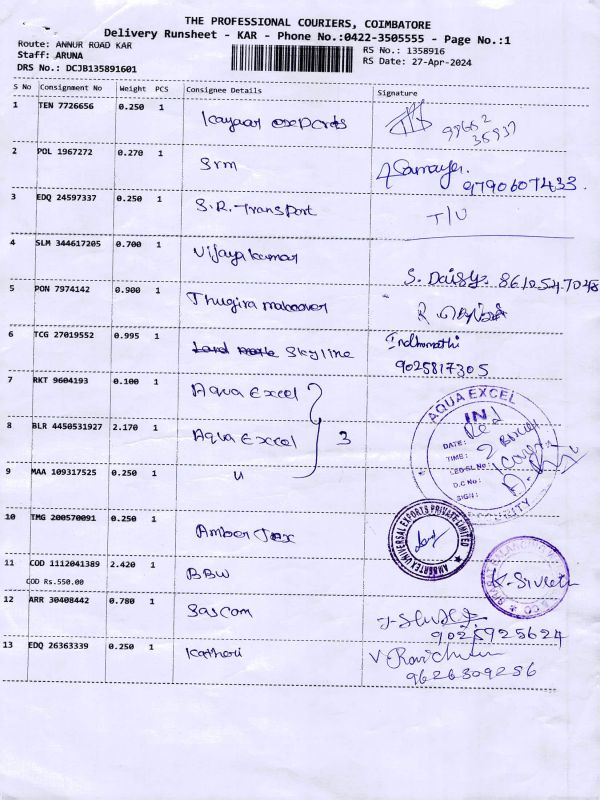 THE PROFESSIONAL COURIERS, COIMBATORE
Delivery Runsheet - KAR - Phone No.:0422-3505555 - Page No.:1
Route: ANNUR ROAD KAR
RS No.: 1358916
Staff: ARUNA
RS Date: 27-Apr-2024
DRS No.: DCJB135891601
S No Consignment No Weight PCS Consignee Details Signature
1 TEN 7726656 0.250 1 Kayaar exports
2 POL 1967272 0.270 1 Srm
9790607433
3 EDQ 24597337 0.250 1 S.R. Transport T/U
4 SLM 344617205 0.700 1 Vijaya kumar
S. Daisy. 8610547048
5 PON 7974142 0.900 1 Thugira makeover
6 TCG 27019552 0.995 1 Skyline Indhumathi
9025817305
7 RKT 9604193 0.100 1 Aqua Excel
8 BLR 4450531927 2.170 1 Aqua Excel 3
9 MAA 109317525 0.250 1 "
AQUA EXCEL
IN
DATE:
TIME:
LED.SL.No:
D.C No:
SIGN:
SECURITY
10 TMG 200570091 0.250 1 Amber Tex
AMBERTEX UNIVERSAL EXPORTS PRIVATE LIMITED
11 COD 1112041389 2.420 1 BBW
COD Rs.550.00
12 ARR 30408442 0.780 1 Sascom
9025925624
13 EDQ 26363339 0.250 1 Katheri
V. Ravichandran
9626809256